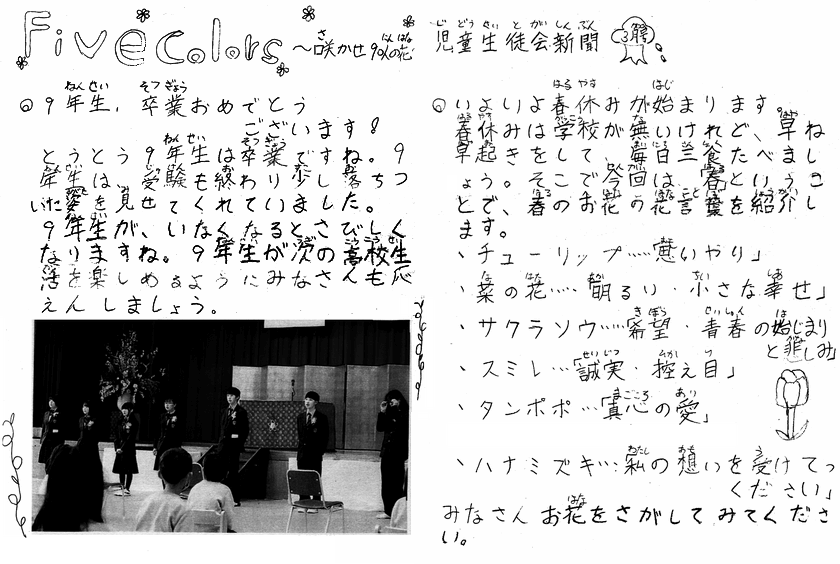 Five Colors ～咲かせ90人の花 児童生徒会新聞 3月号
◎9年生、卒業おめでとう
ございます!
とうとう9年生は卒業ですね。9
年生は、受験も終わり少し落ちつ
いた姿を見せてくれていました。
9年生が、いなくなるとさびしく
なりますね。9年生が次の高校生
活を楽しめるようにみなさんも応
えんしましょう。
◎いよいよ春休みが始まります。
春休みは学校が無いけれど、早ね
早起きをして、毎日三食たべまし
ょう。そこで今回は、春ということ
で、春のお花の花言葉を紹介し
ます。
、チューリップ……「思いやり」
、菜の花……「明るい・小さな幸せ」
、サクラソウ……「希望・青春の始まり
と悲しみ」
、スミレ…「誠実・控え目」
、タンポポ…「真心の愛」
、ハナミズキ…「私の想いを受けてっ
ください」
みなさんお花をさがしてみてくださ
い。